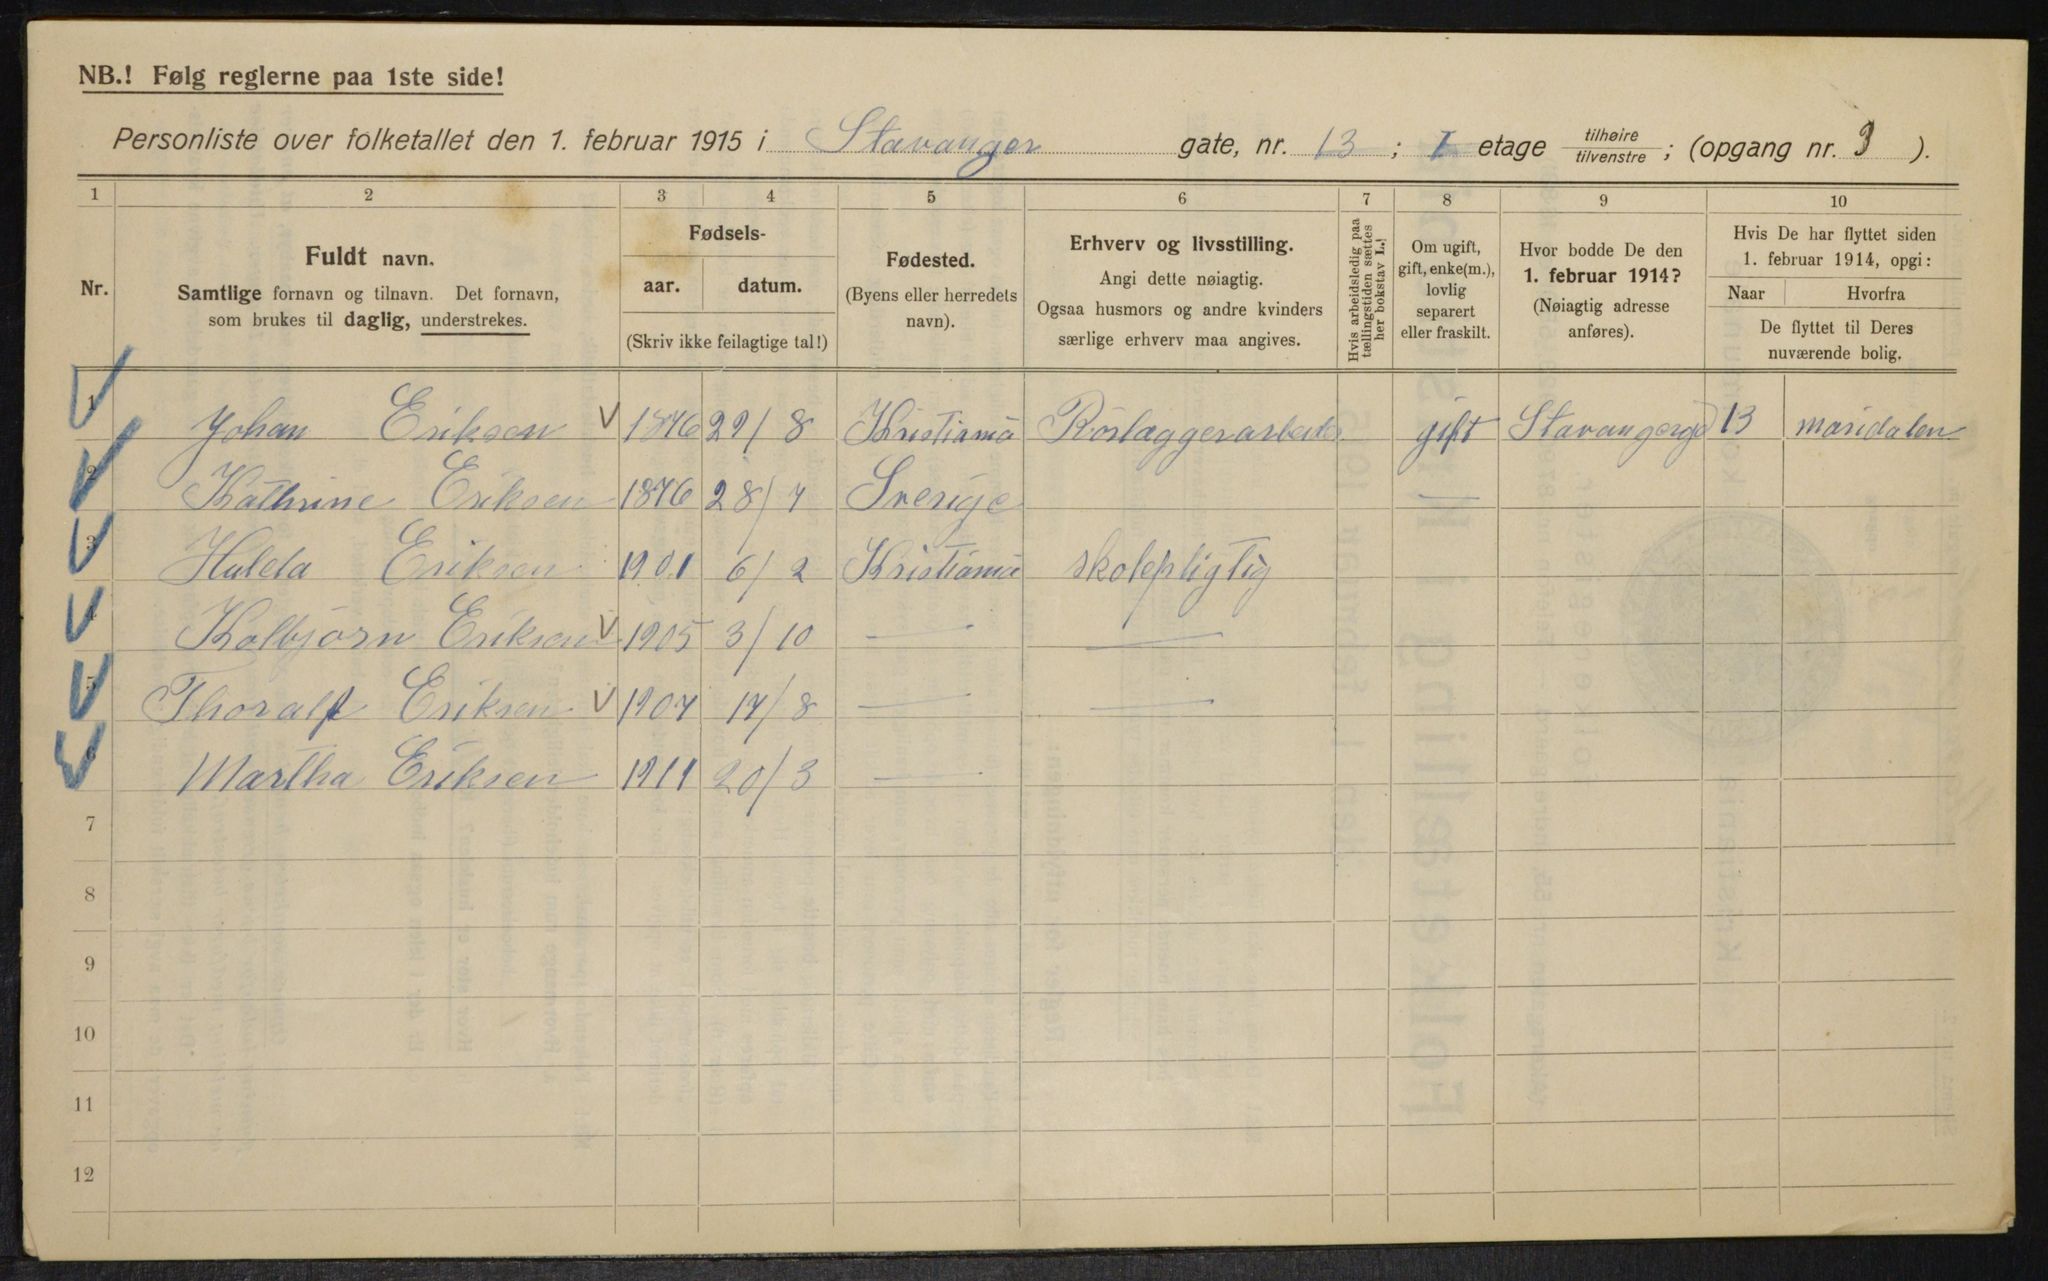 NB.! Følg reglerne paa 1ste side!
Personliste over folketallet den 1. februar 1915 i Stavanger gate, nr. 13 ; I etage tilhøire / tilvenstre ; (opgang nr. 3 ).
1 2 3 4 5 6 7 8 9 10
Nr.
Fuldt navn.
Samtlige fornavn og tilnavn. Det fornavn,
som brukes til daglig, understrekes.
Fødsels-
aar. datum.
(Skriv ikke feilagtige tal!)
Fødested.
(Byens eller herredets
navn).
Erhverv og livsstilling.
Angi dette nøiagtig.
Ogsaa husmors og andre kvinders
særlige erhverv maa angives.
Hvis arbeidsledig paa
tællingstiden sættes
her bokstav L.
Om ugift,
gift, enke(m.),
lovlig
separert
eller fraskilt.
Hvor bodde De den
1. februar 1914?
(Nøiagtig adresse
anføres).
Hvis De har flyttet siden
1. februar 1914, opgi:
Naar Hvorfra
De flyttet til Deres
nuværende bolig.
1 Johan Eriksen V 1876 29/8 Kristiania Rörlæggerarbeider gift Stavangergd 13 maridalen
2 Kathrine Eriksen 1876 28/7 Sverige —
3 Hulda Eriksen 1901 6/2 Kristiania skolepligtig
4 Kolbjørn Eriksen V 1905 3/10 — —
5 Thoralf Eriksen V 1907 17/8 — —
6 Martha Eriksen 1911 20/3 —
7
8
9
10
11
12